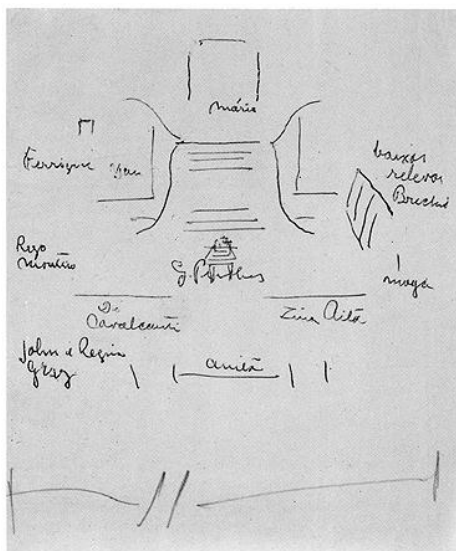 mário
Ferrignac Yan
baixos
relevos
Brecheret
Rego
Monteiro
Moya
Di
Cavalcanti
Zina Aita
John e Regina
Graz
anita